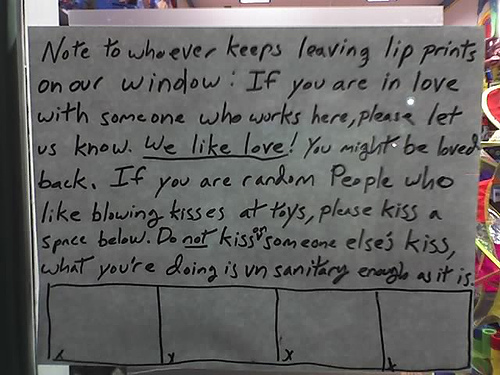 Note to whoever keeps leaving lip prints
on our window: If you are in love
with someone who works here, please let
us know. We like love! You might be loved
back. If you are random People who
like blowing kisses at toys, please kiss a
space below. Do not kiss on someone else's kiss,
what you're doing is unsanitary enough as it is.
x x x x